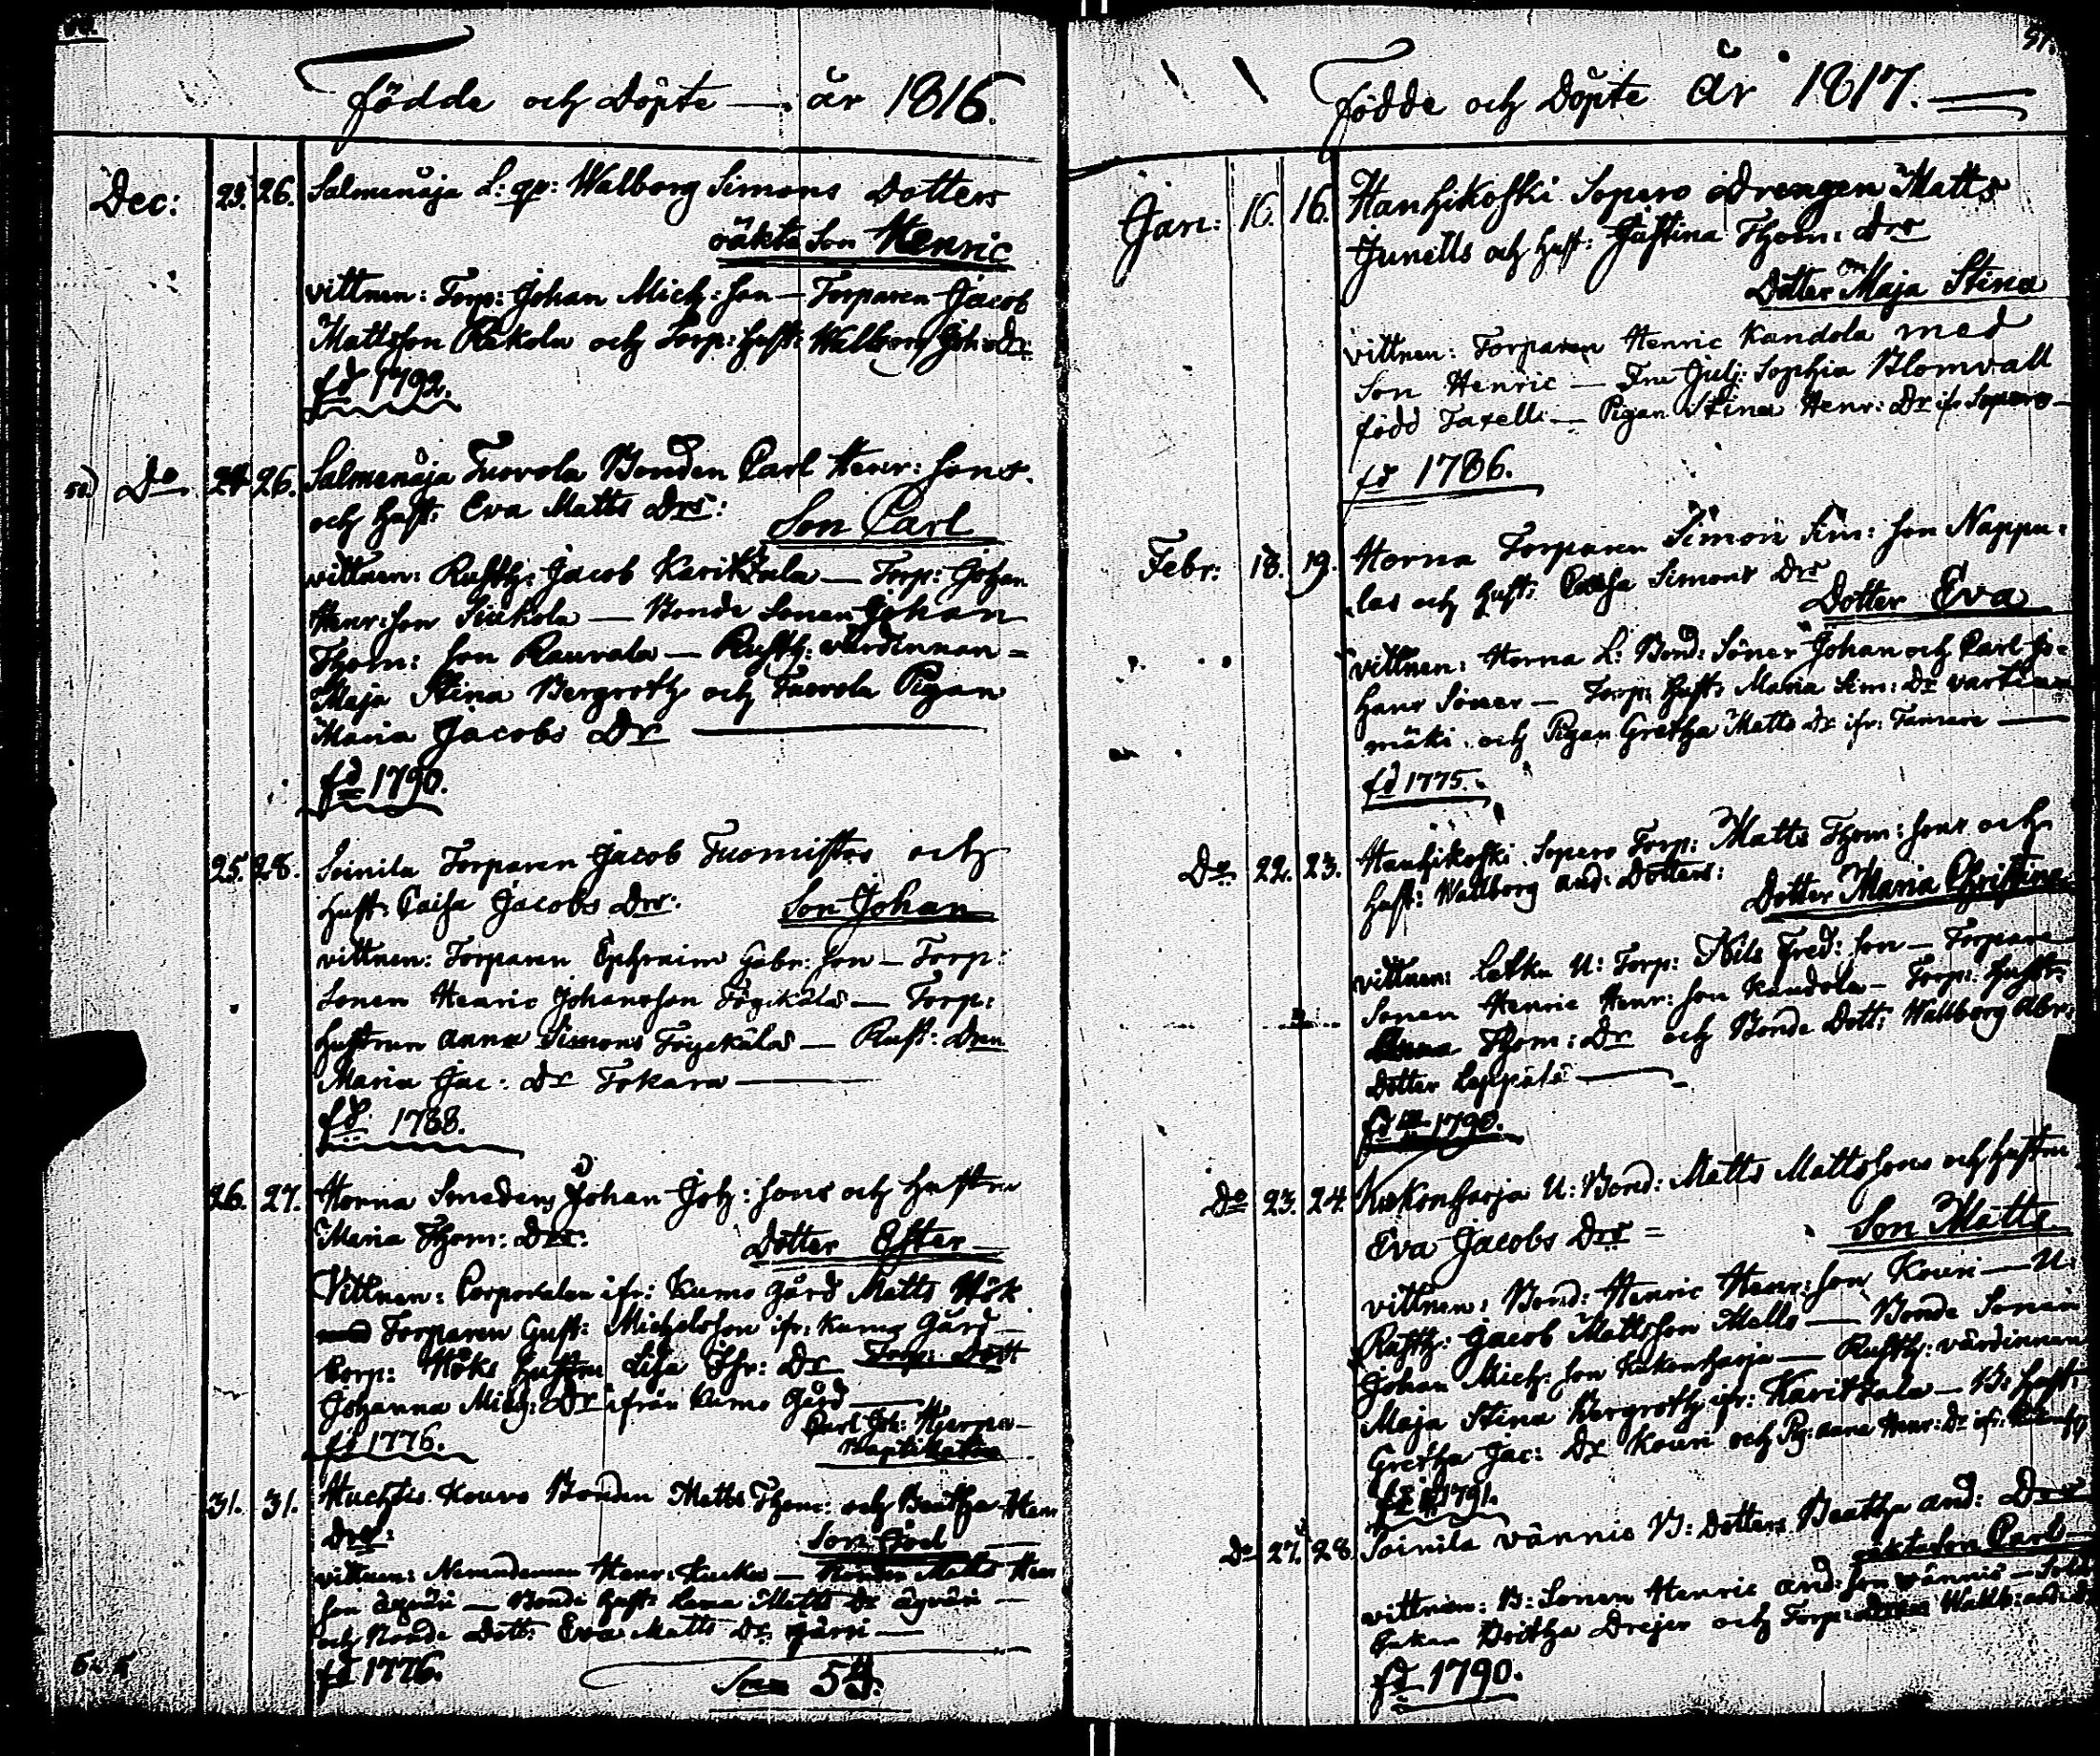 födde och Döpte — år 1816.
Dec: 23. 26. Salmenoja L: qp: Walborg Simons Dotters
oäkta Son Henric
vittnen: Torp: Johan Mich: Son — Torparen Jacob
Mattsson Rekola och Torp: Hust: Wallborg Joh: Dr:
fd 1792.
50) Do 24 26. Salmenoja Tuovola Bonden Carl Henr: Sons
och Hust: Eva Matts Drs: Son Carl
vittnen: Rusth: Jacob Karitzala — Torp: Johan
Henr: Son Siukola — Bonde Sonen Johan
Thom: Son Rauvala — Rusth: värdinnan =
Maja Stina Bergroth och Tuovola Pigan
Maria Jacobs Dr
fd 1790.
25. 28. Soinila Torparen Jacob Tuomistos och
Hust: Caisa Jacobs Drs: Son Johan
vittnen: Torparen Ephraim Gabr: Son — Torp:
Sonen Henric Johansson — Torp:
Hustrun Anna Simons — Rust: Dren
Maria Jac: Dr Tokara
fd. 1788.
26. 27. Horna Smedens Johan Joh: Sons och Hustru
Maria Thom: Drs: Dotter Ester
Vittnen: Corporalen ifr: Kumo gård Matts Hök
Torparen Gust: Michelsson ifr: Kumo Gård —
Corp: Höks Hustru Lisa Dr Torp: Dott
Johanna Mich: Dr ifrån Kumo Gård
fd 1776. Carl Joh:
31. 31. Huchtis Kouvo Bonden Matts Thom: och Beatha Hen
Drs: Son Joel
vittnen: Nemndeman Henr: — Bonden Matts Hen
Son Äyväri — Bonde Hust: Lena Matts Dr Äyväri —
och Bonde Dott: Eva Matts Dr
fd 1776. Sum 54.
födde och Döpte År 1817.
Jan: 16. 16. Hanhikoski Sopero Drengen Matts
Junells och Hust: Justina Thom: Drs
Dotter Maja Stina
vittnen: Torparen Henric Kandola med
Son Henric — Fru Julj: Sophia Blomvall
född Taxell — Pigan Stina Henr: Dr ifr Sopero —
fd 1786.
Febr: 18. 19. Horna Torparen Simon Sim: Son Nappu:
las och Hust: Caisa Simons Drs
Dotter Eva
vittnen: Horna L: Bond: Söner Johan och Carl Jo=
hans Söner — Torp: Hust: Maria Sim: Dr
mäki och Pigan Gretha Matts Dr ifr: Tamare
fd 1775.
Do 22. 23. Hanhikoski Sopero Torp: Matts Thom: Sons och
Hust: Wallborg And: Dotters: Dotter Maria Christina
vittnen: Latku U: Torp: Nils Fred: Son — Torpare
Sonen Henric Henr: Son Kandola — Torp: Hust:
Thom: Dr och Bonde Dott: Wallborg Abr:
Dotter Leppälä
fd 1790.
Do 23. 24. Kukonharja U: Bond: Matts Mattssons och Hustru
Eva Jacobs Drs = Son Matts
vittnen: Bond: Henric Henr: Son Kouri — U:
Rusth: Jacob Mattsson Mells — Bonde Sonen
Johan Mich: Son Kukonharja — Rusth: värdinnan
Maja Stina Bergroth ifr: Karitzala — B: Hust:
Gretha Jac: Dr Kouri och Pig: Anna Henr: Dr ifr:
fd 1791.
Do 27. 28. Soinila vännis B: Dotters Beatha And: Drs
oäkta Son Carl
vittnen: B: Sonen Henric And: Son vännis —
Britha Drejer och Torp: Wallb: And: Dr
fd 1790.